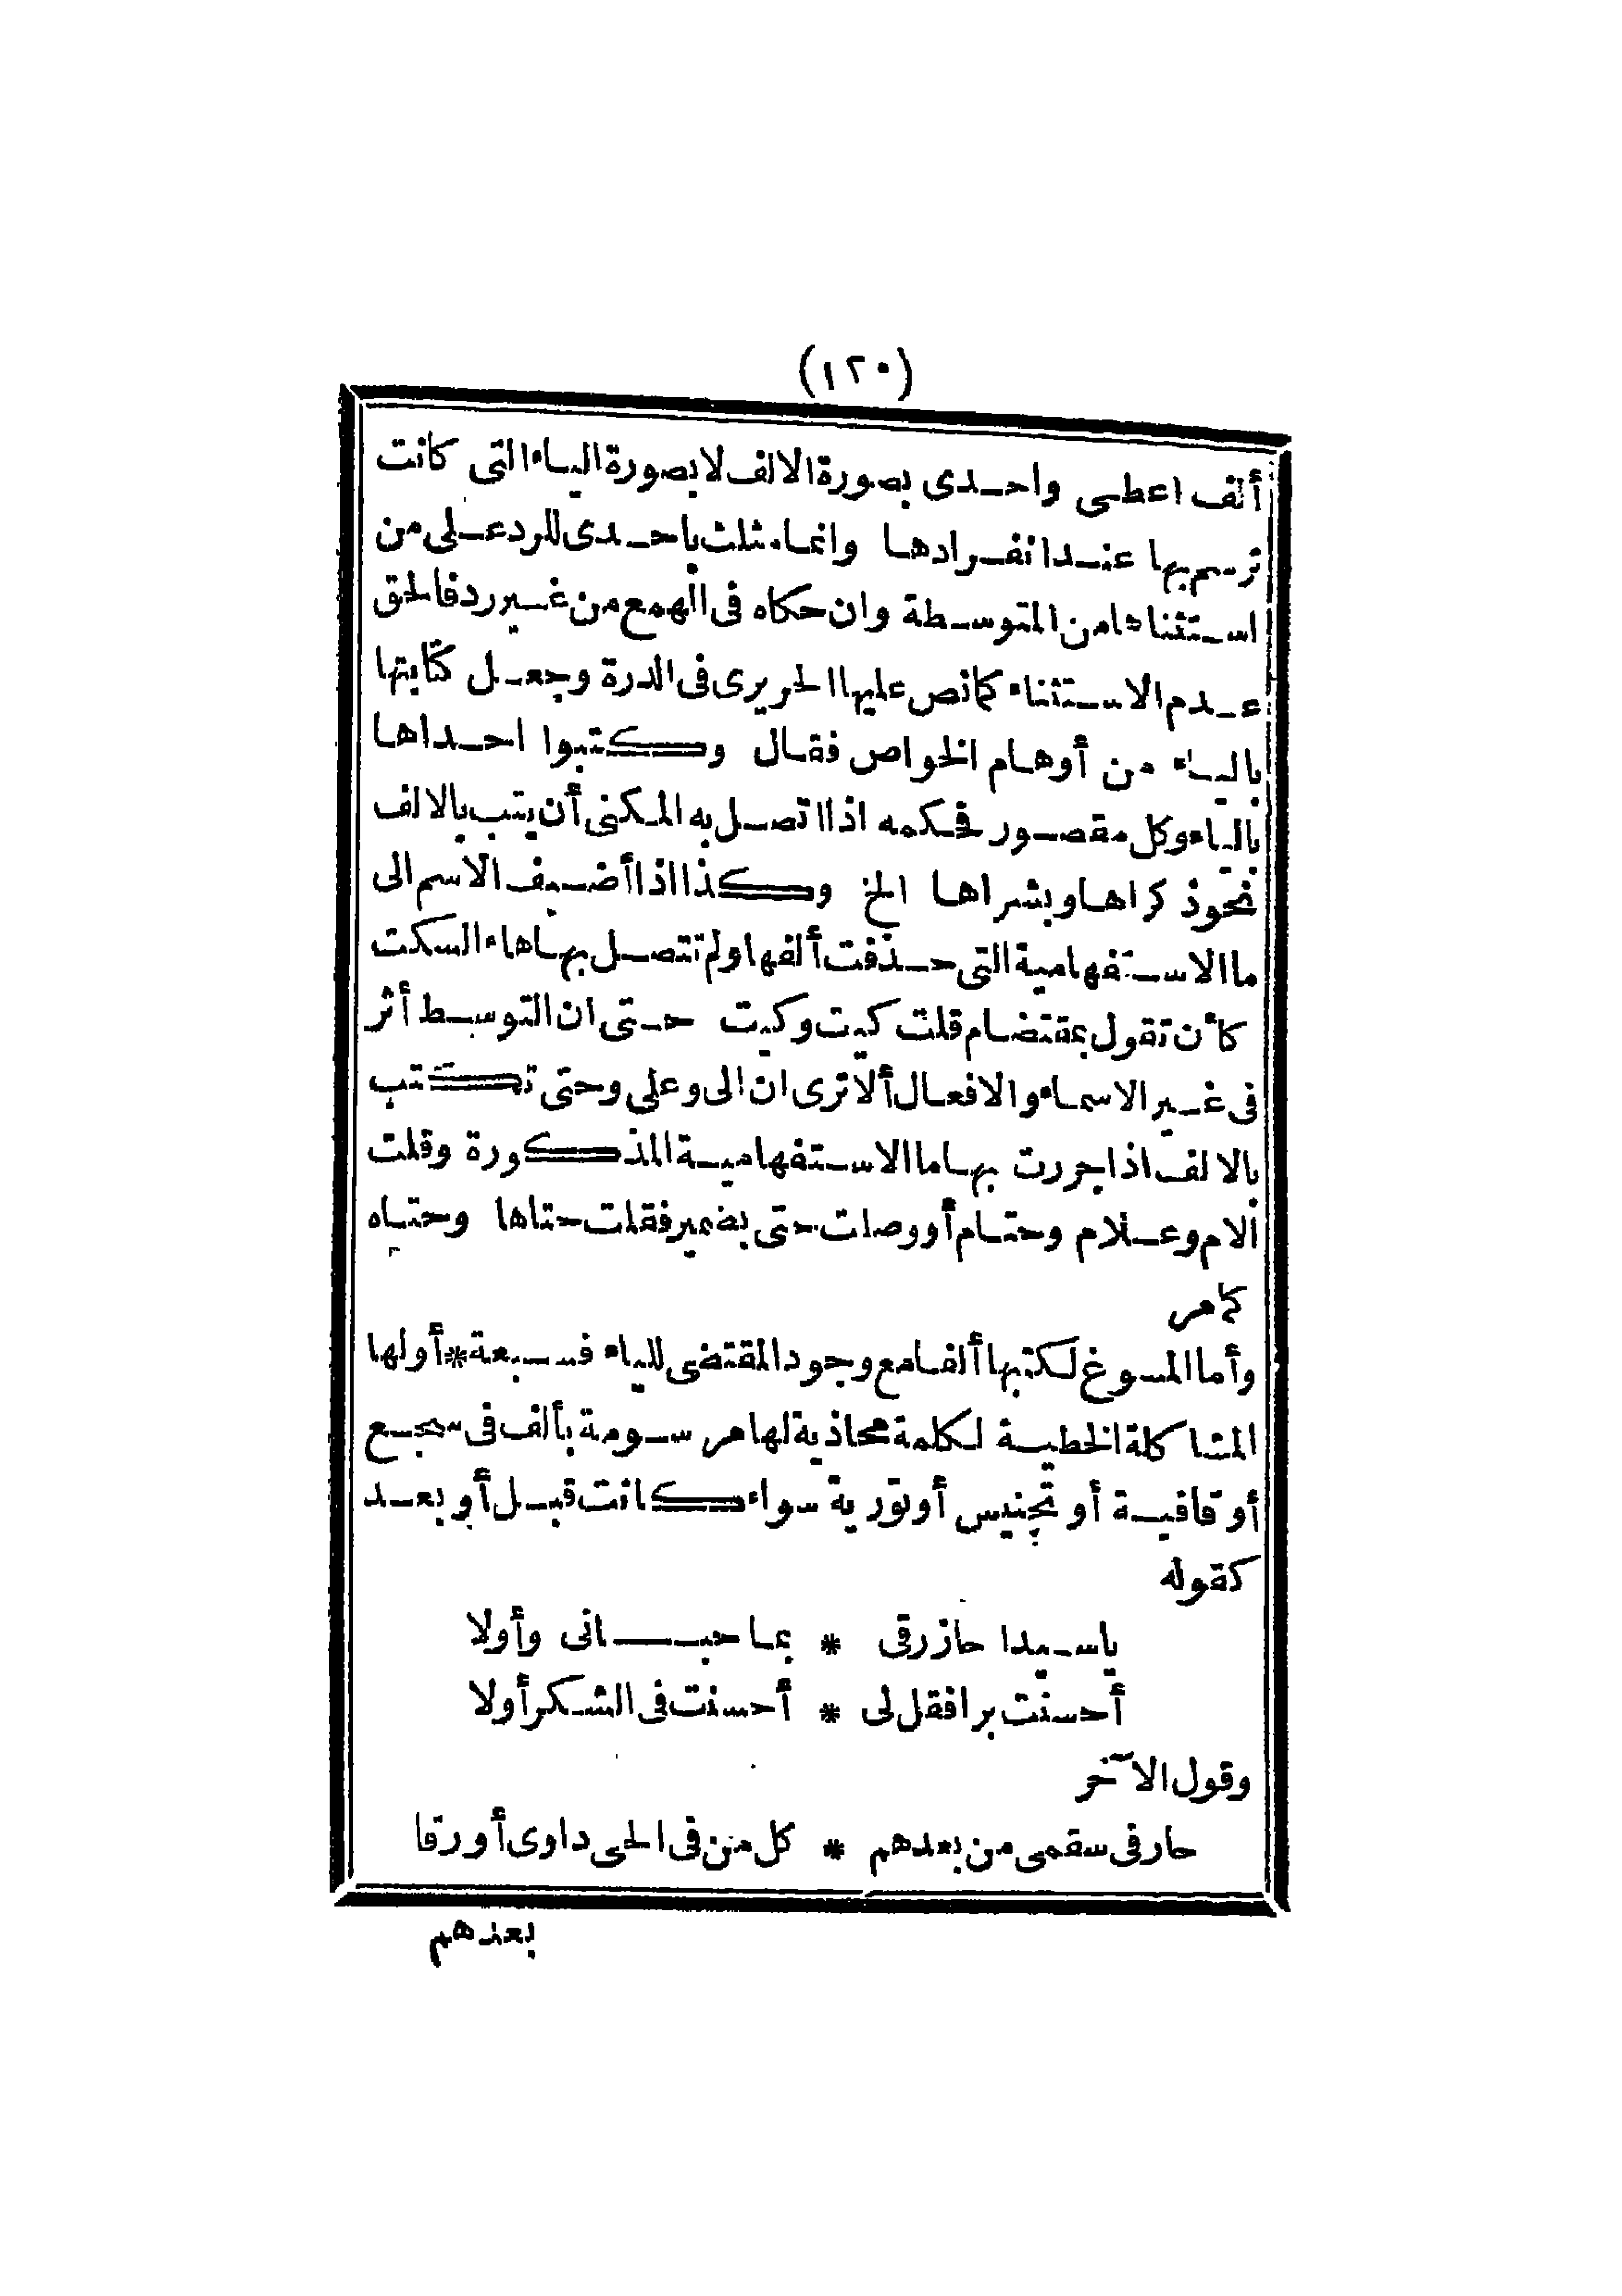 (١٢٠)
ألف اعطى واحدى بصورة الالف لا بصورة الياء التى كانت
ترسم بها عند انفرادها وانما مثلت باحدى للرد على من
استثناها من المتوسطة وان حكاه فى الهمع من غير رد فالحق
عدم الاستثناء كما نص عليها الحريرى فى الدرة وجعل كتابتها
بالياء من أوهام الخواص فقال وكتبوا احداها
بالياء وكل مقصور فحكمه اذا اتصل به المكنى أن يتب بالالف
نحو ذكراها وبشراها الخ وكذا اذا أضيف الاسم الى
ما الاستفهامية التى حذفت ألفها ولم تتصل بها هاء السكت
كأن تقول بمقتضام قلت كيت وكيت حتى ان التوسط أثر
فى غير الاسماء والافعال ألا ترى ان الى وعلى وحتى تكتب
بالالف اذا جررت بها ما الاستفهامية المذكورة وقلت
الام وعلام وحتام أو وصلت حتى بضمير فقلت حتاها وحتاه
كما مر
وأما المسوغ لكتبها ألفا مع وجود المقتضى للياء فسبعة * أولها
المشاكلة الخطية لكلمة محاذية لها مرسومة بألف فى سجع
أو قافية أو تجنيس أو تورية سواء كانت قبل أو بعد
كقوله
ياسيدا حاز رقى * بما حبانى وأولا
أحسنت برا فقل لى * أحسنت فى الشكر أولا
وقول الآخر
حار فى سقمى من بعدهم * كل من فى الحى داوى أو رقا
بعدهم